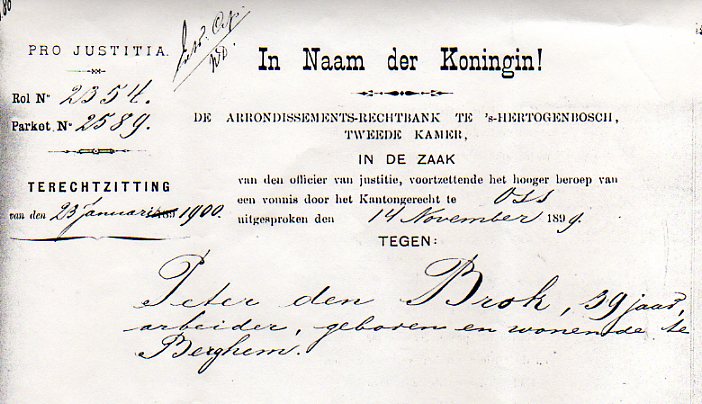 PRO JUSTITIA.
Rol No 2354.
Parket No 2589.
TERECHTZITTING
van den 23 Januari 1900.
In Naam der Koningin!
DE ARRONDISSEMENTS-RECHTBANK TE 's-HERTOGENBOSCH,
TWEEDE KAMER,
IN DE ZAAK
van den officier van justitie, voortzettende het hooger beroep van
een vonnis door het Kantongerecht te Oss
uitgesproken den 14 November 1899.
TEGEN:
Peter den Brok, 39 jaar,
arbeider, geboren en wonende te
Berghem.